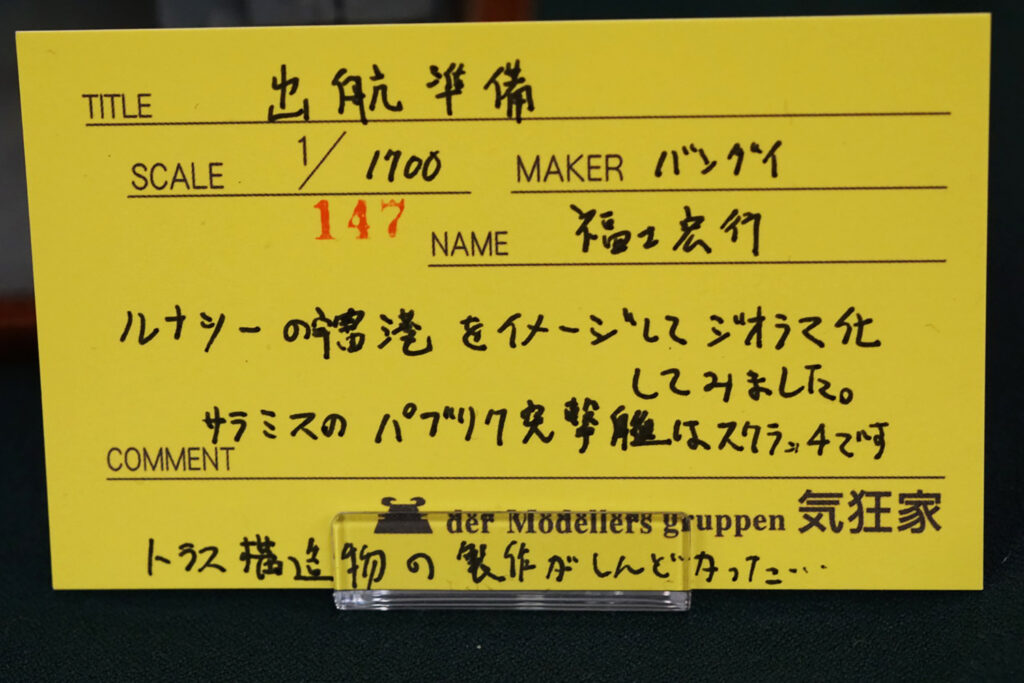 TITLE 出航準備
SCALE 1/1700 MAKER バンダイ
147
NAME 福士宏行
ルナツーの港をイメージしてジオラマ化
してみました。
サラミスのパブリク突撃艇はスクラッチです
COMMENT
der Modellers gruppen 気狂家
トラス構造物の製作がしんどかった……